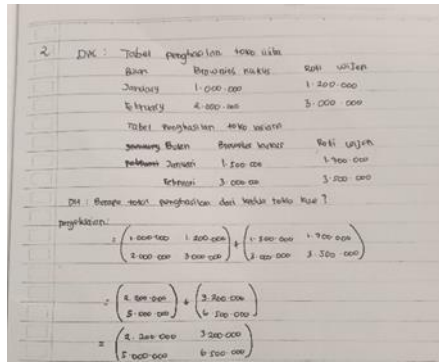 2 Dik : Tabel penghasilan toko
Bulan Brownies kukus Roti wijen
January 1.000.000 1.200.000
February 2.000.000 3.000.000
Tabel penghasilan toko
Bulan Brownies kukus Roti wijen
Januari 1.500.000 1.900.000
Februari 3.000.000 3.500.000
Dit : Berapa total penghasilan dari kedua toko kue ?
= (1.000.000 1.200.000) + (1.500.000 1.900.000)
(2.000.000 3.000.000) (3.000.000 3.500.000)
= (2.500.000) + (3.200.000)
(5.000.000) (6.500.000)
= (2. 200.000 3.200.000)
(5.000.000 6.500.000)